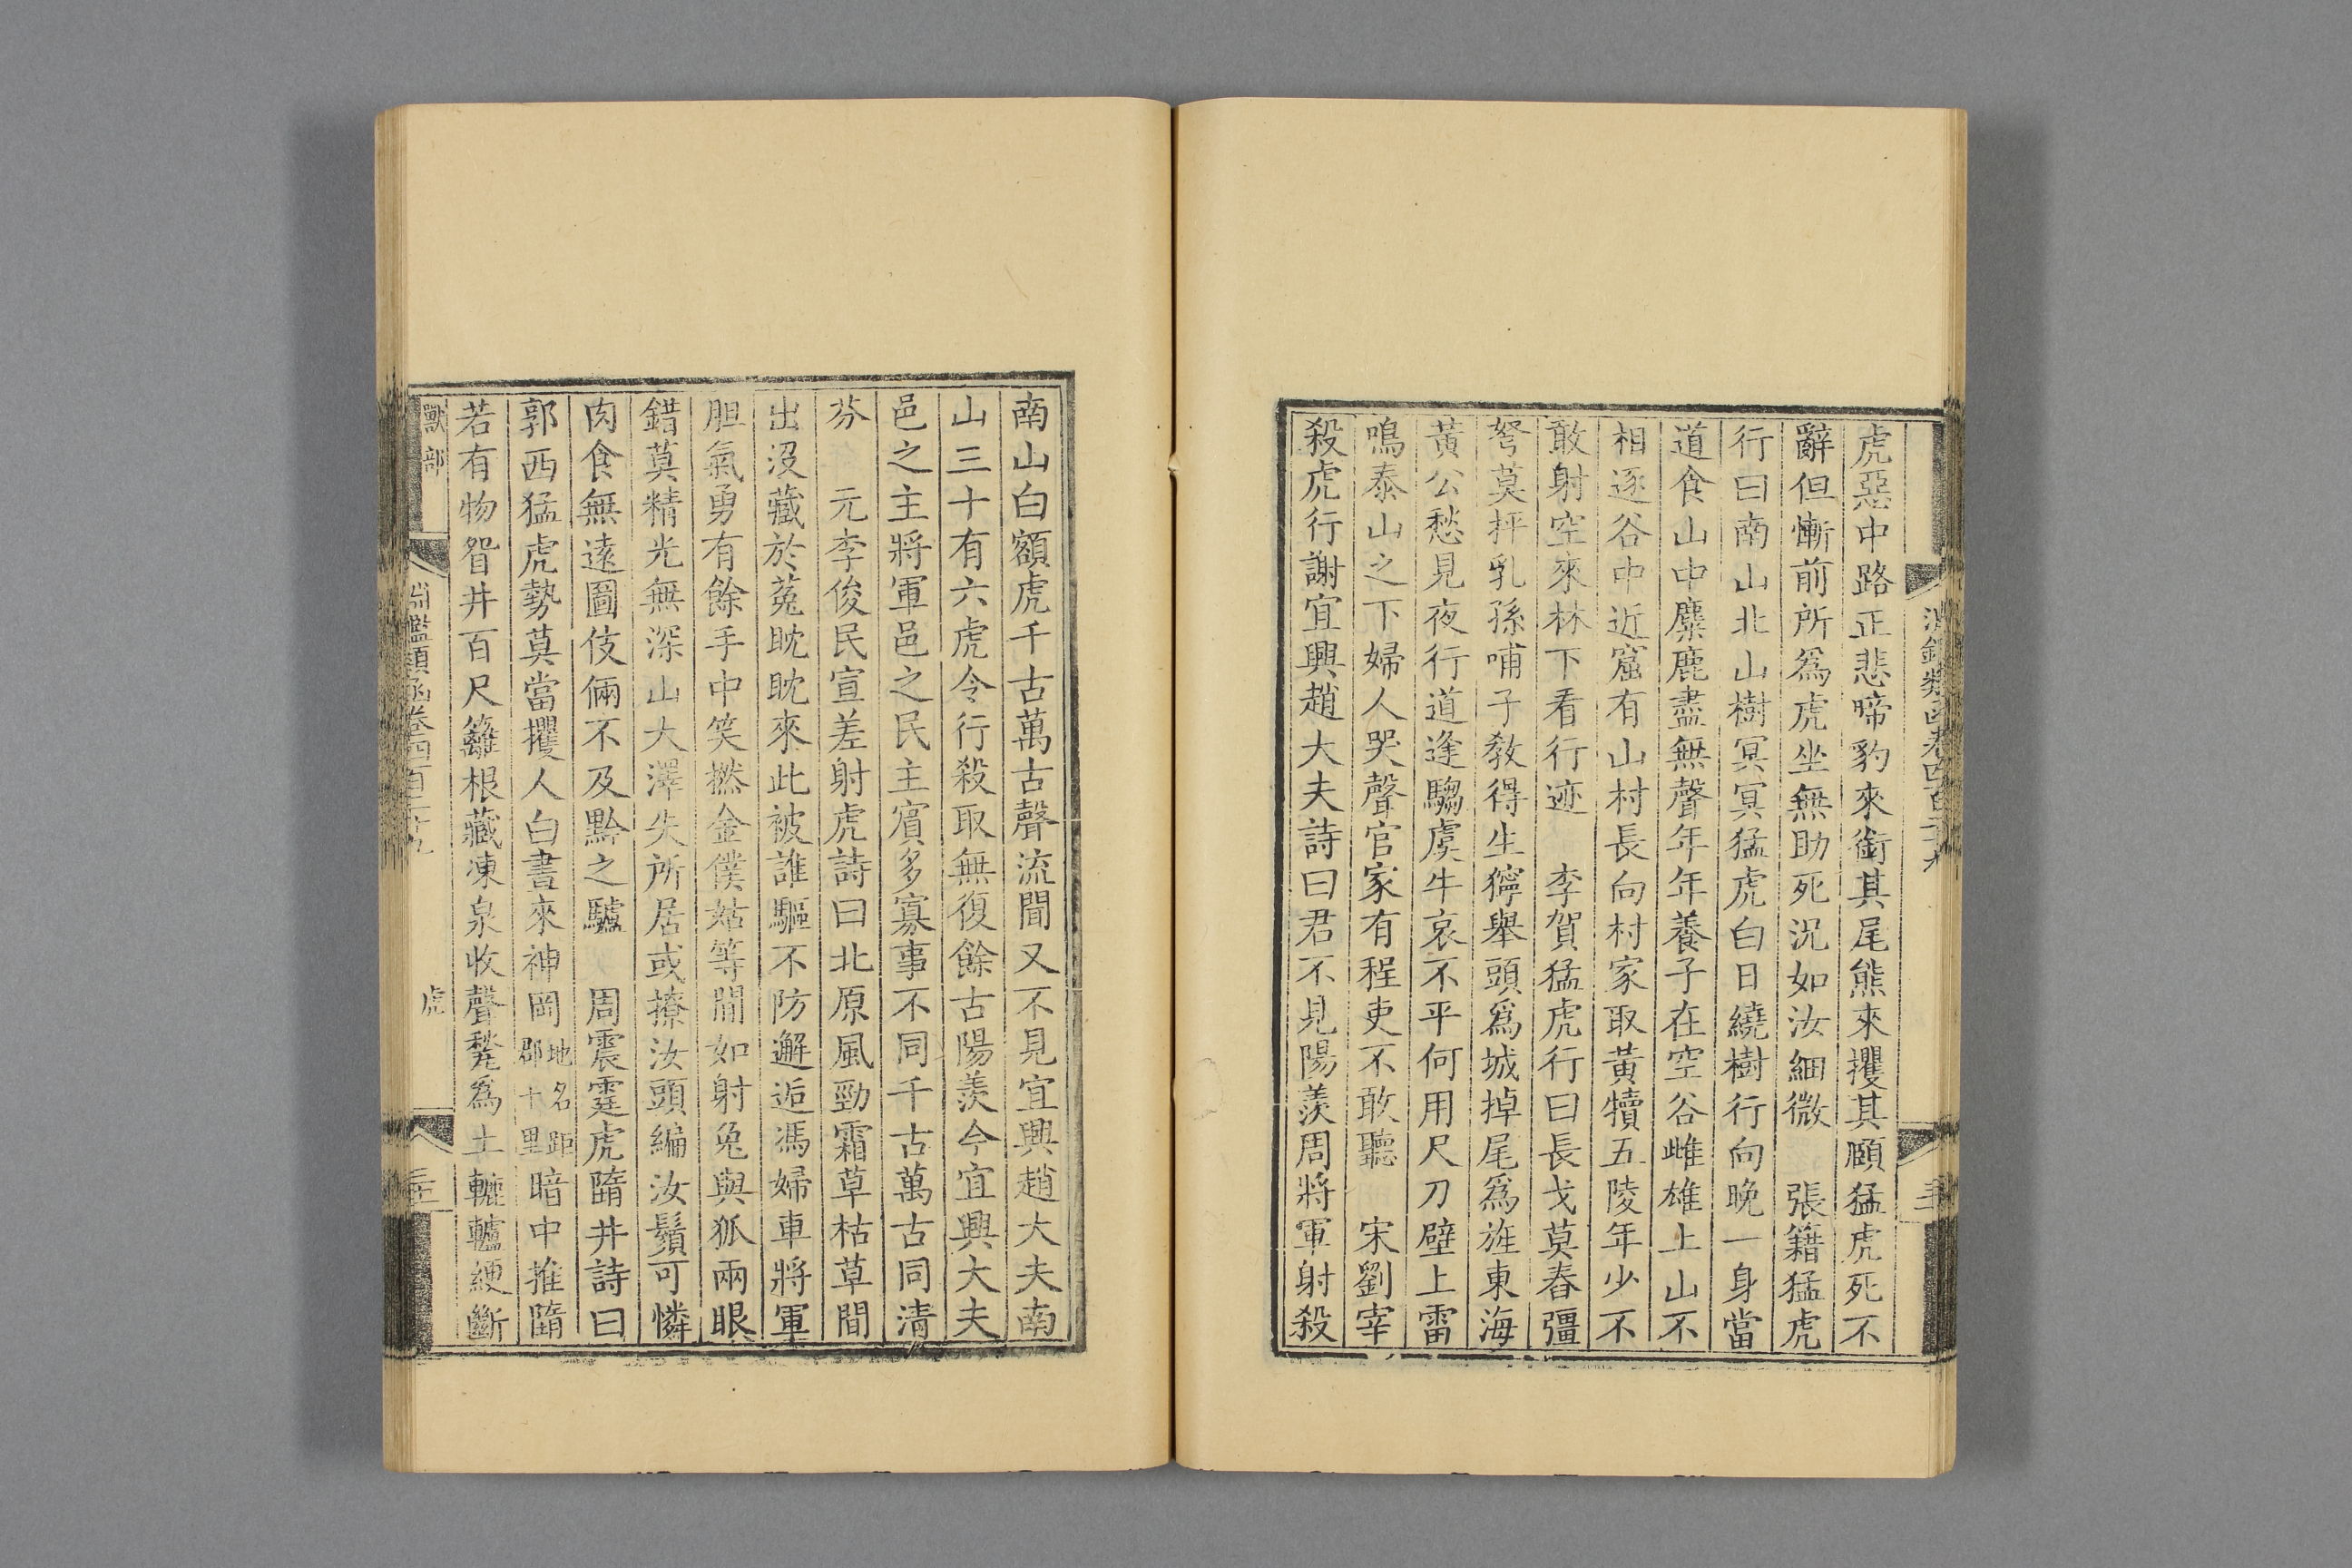 虎惡中路正悲啼豹來銜其尾熊來攫其頤猛虎死不
辭但慚前所爲虎坐無助死況如汝細微　張籍猛虎
行曰南山北山樹冥冥猛虎白日繞樹行向晚一身當
道食山中麋鹿盡無聲年年養子在空谷雌雄上山不
相逐谷中近窟有山村長向村家取黃犢五陵年少不
敢射空來林下看行迹　李賀猛虎行曰長戈莫舂彊
弩莫抨乳孫哺子教得生獰舉頭爲城掉尾爲旌東海
黃公愁見夜行道逢騶虞牛哀不平何用尺刀壁上雷
鳴泰山之下婦人哭聲官家有程吏不敢聽　宋劉宰
殺虎行謝宜興趙大夫詩曰君不見陽羨周將軍射殺
南山白額虎千古萬古聲流聞又不見宜興趙大夫南
山三十有六虎令行殺取無復餘古陽羨今宜興大夫
邑之主將軍邑之民主賓多寡事不同千古萬古同清
芬　元李俊民宣差射虎詩曰北原風勁霜草枯草間
出沒藏於菟眈眈來此被誰驅不防邂逅馮婦車將軍
胆氣勇有餘手中笑撚金僕姑等閒如射兔與狐兩眼
錯莫精光無深山大澤失所居或撩汝頭編汝鬚可憐
肉食無遠圖伎倆不及黔之驢　周震霆虎墮井詩曰
郭西猛虎勢莫當攫人白晝來神岡地名距郡十里暗中推墮
若有物眢井百尺籬根藏凍泉收聲甃爲土轆轤綆斷
獸部
淵鑑類函卷四百二十九
虎